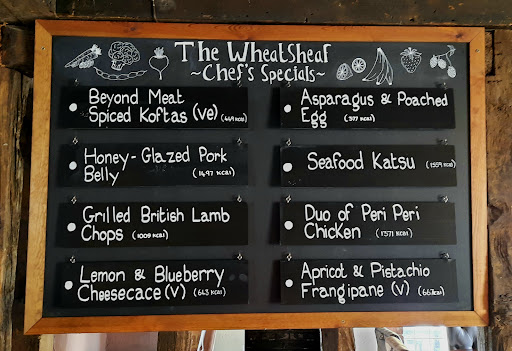 The Wheatsheaf
~Chef's Specials~
Beyond Meat
Spiced Koftas (ve) (449 kcal)
Honey-Glazed Pork
Belly (1,497 kcal)
Grilled British Lamb
Chops (1009 kcal)
Lemon & Blueberry
Cheesecace (v) (643 kcal)
Asparagus & Poached
Egg (377 kcal)
Seafood Katsu (1559 kcal)
Duo of Peri Peri
Chicken (1371 kcal)
Apricot & Pistachio
Frangipane (v) (667kcal)